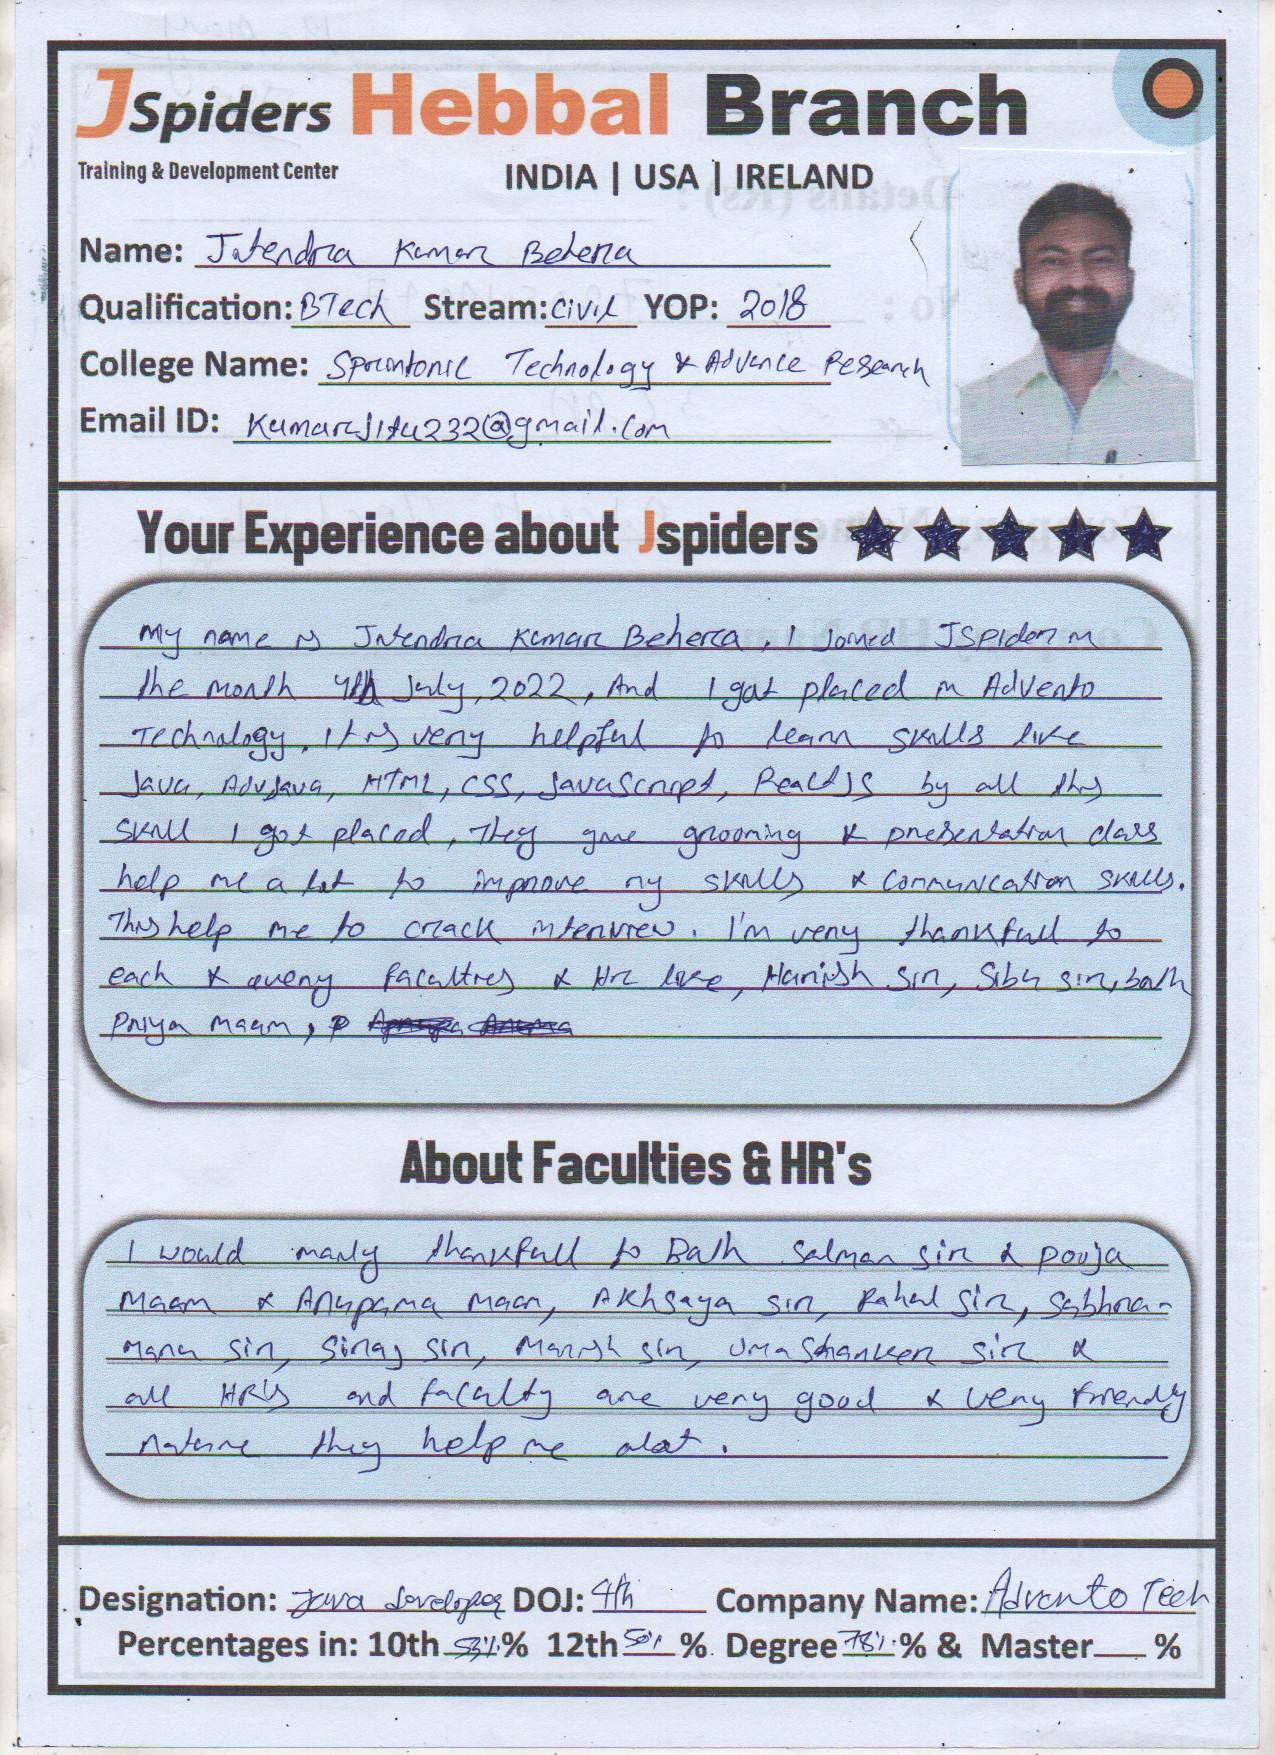 JSpiders Hebbal Branch
Training & Development Center
INDIA | USA | IRELAND
Name: Jitendra Kumar Behera
Qualification: BTech Stream: Civil YOP: 2018
College Name: Technology & Advance Research
Email ID: Kumarjitu232@gmail.com
Your Experience about Jspiders
My name is Jitendra Kumar Behera, I joined JSpider in
the month 4th July, 2022, And I got placed in Advento
Technology. It is very helpful to learn skills like
Java, AdvJava, HTML, CSS, JavaScript, ReactJS by all this
skill I got placed, They give grooming & presentation class
help me a lot to improve my skills & Communication skills.
This help me to crack interview. I'm very thankfull to
each & every faculties & Hr like, Manish sir, Sibu sir, both
Priya maam,
About Faculties & HR's
I would manly thankfull to Both Salman sir & pooja
Maam & Anupama maam, Akhsaya sir, Rahul sir, Sabhra-
manu sir, Siraj sir, Manish sir, Uma Shanker sir &
all HR's and faculty are very good & very friendly
nature they help me alot.
Designation: Java developer DOJ: 4th Company Name: Advento Tech
Percentages in: 10th 53%% 12th 50% % Degree 78%.% & Master %